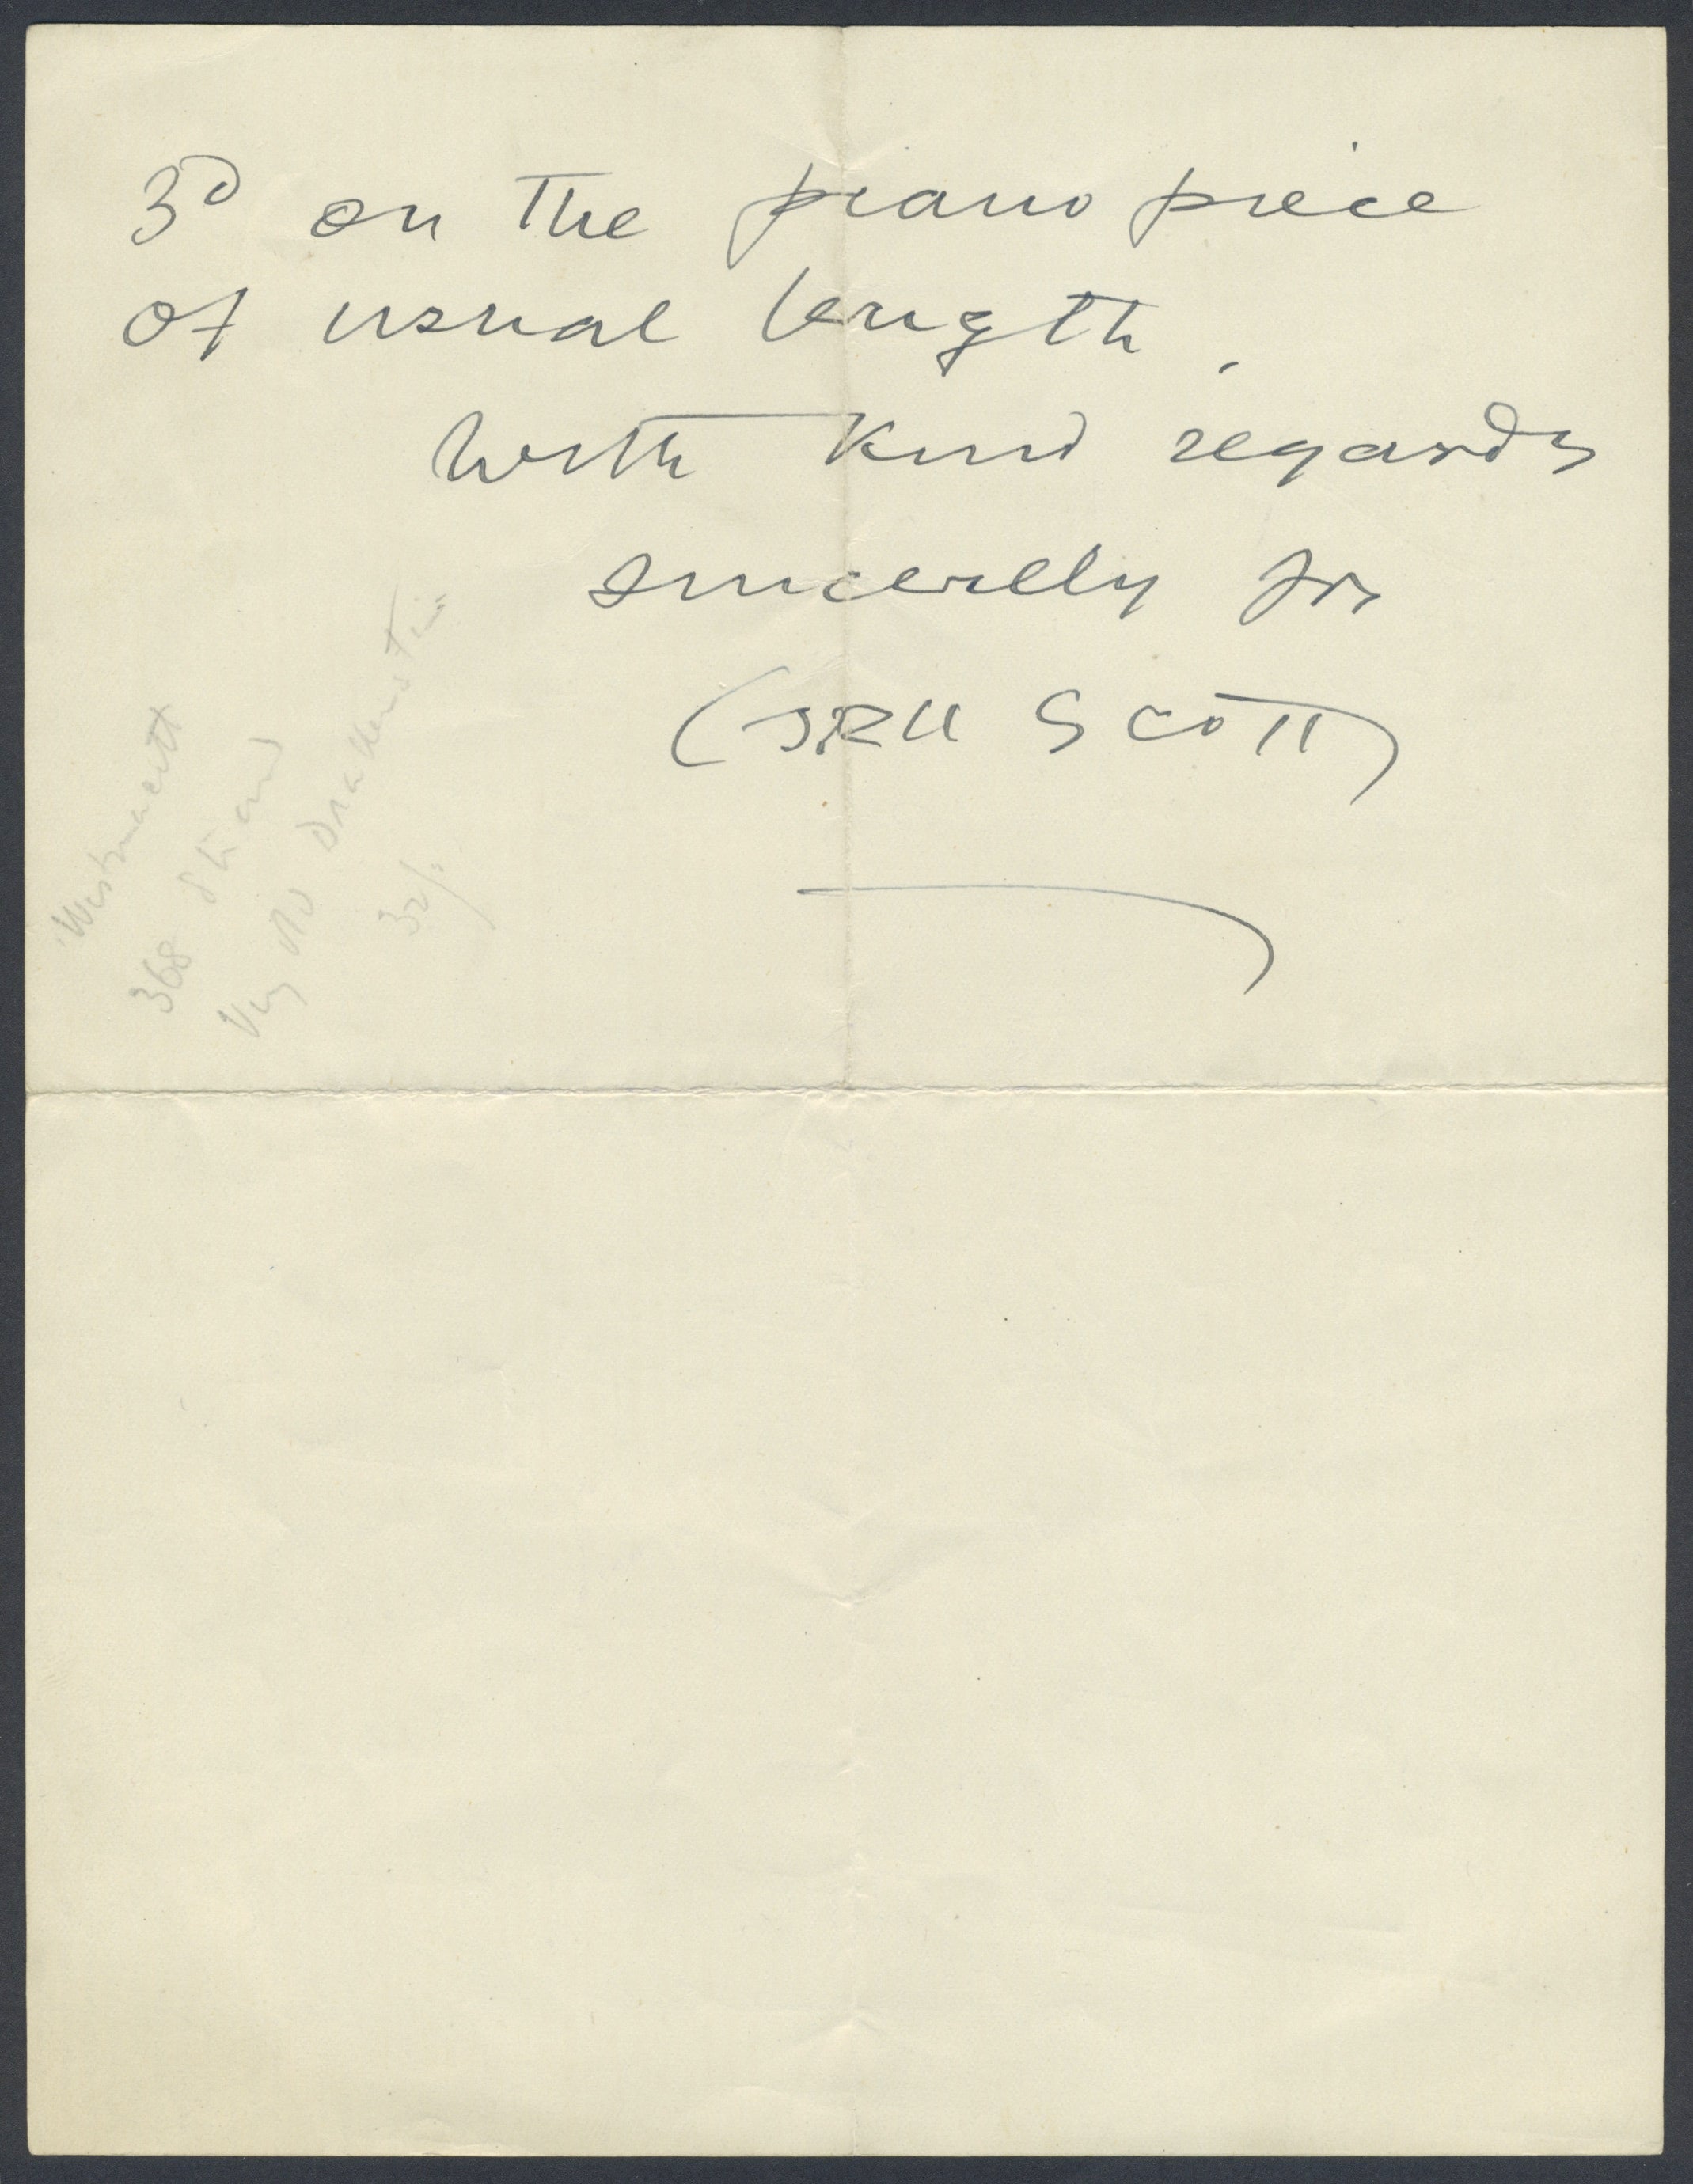 3d on the piano piece
of usual length.
With kind regards
sincerely yrs
Cyril Scott
Westmacott
368 Strand
30/.